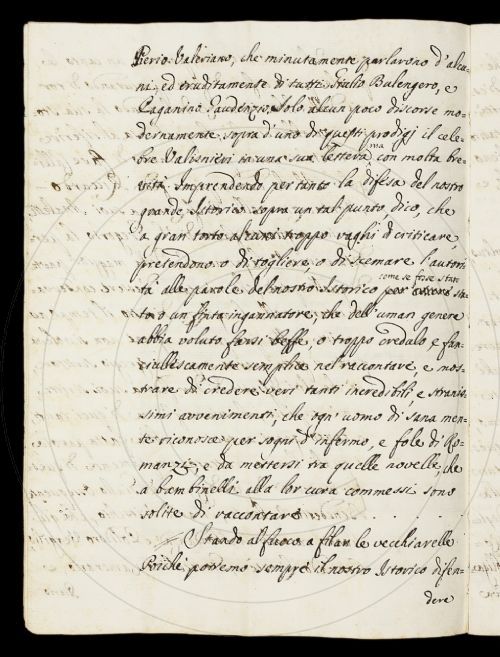 Pierio Valeriano, che minutamente parlarono d'alcu=
ni, ed eruditamente di tutti Giulio Bulengero, e
Paganino Gaudenzio, solo alcun poco discorse mo=
dernamente sopra d'uno di questi prodigj il cele=
bre Valisnieri in una sua lettera, ma con molta bre=
vità. Imprendendo per tanto la difesa del nostro
grande Istorico sopra un tal punto, dico, che
a gran torto alcuni troppo vaghi di criticare,
pretendono o di togliere, o di scemare l'autori=
tà alle parole del nostro Istorico come se fosse stato
o un finto ingannatore, che dell'uman genere
abbia voluto farsi beffe, o troppo credulo, e fan=
ciullescamente semplice nel raccontare, e mos=
trare di credere veri tanti incredibili, e stranis=
simi avvenimenti, che ogn'uomo di sana men=
te riconosce per sogni d'infermo, e fole di Ro=
manzi, e da mettersi tra quelle novelle, che
a bambinelli alla lor cura commessi sono
solite di raccontare
Stando al fuoco a filar le vecchiarelle
Poiche potremo sempre il nostro Istorico difen=
dere